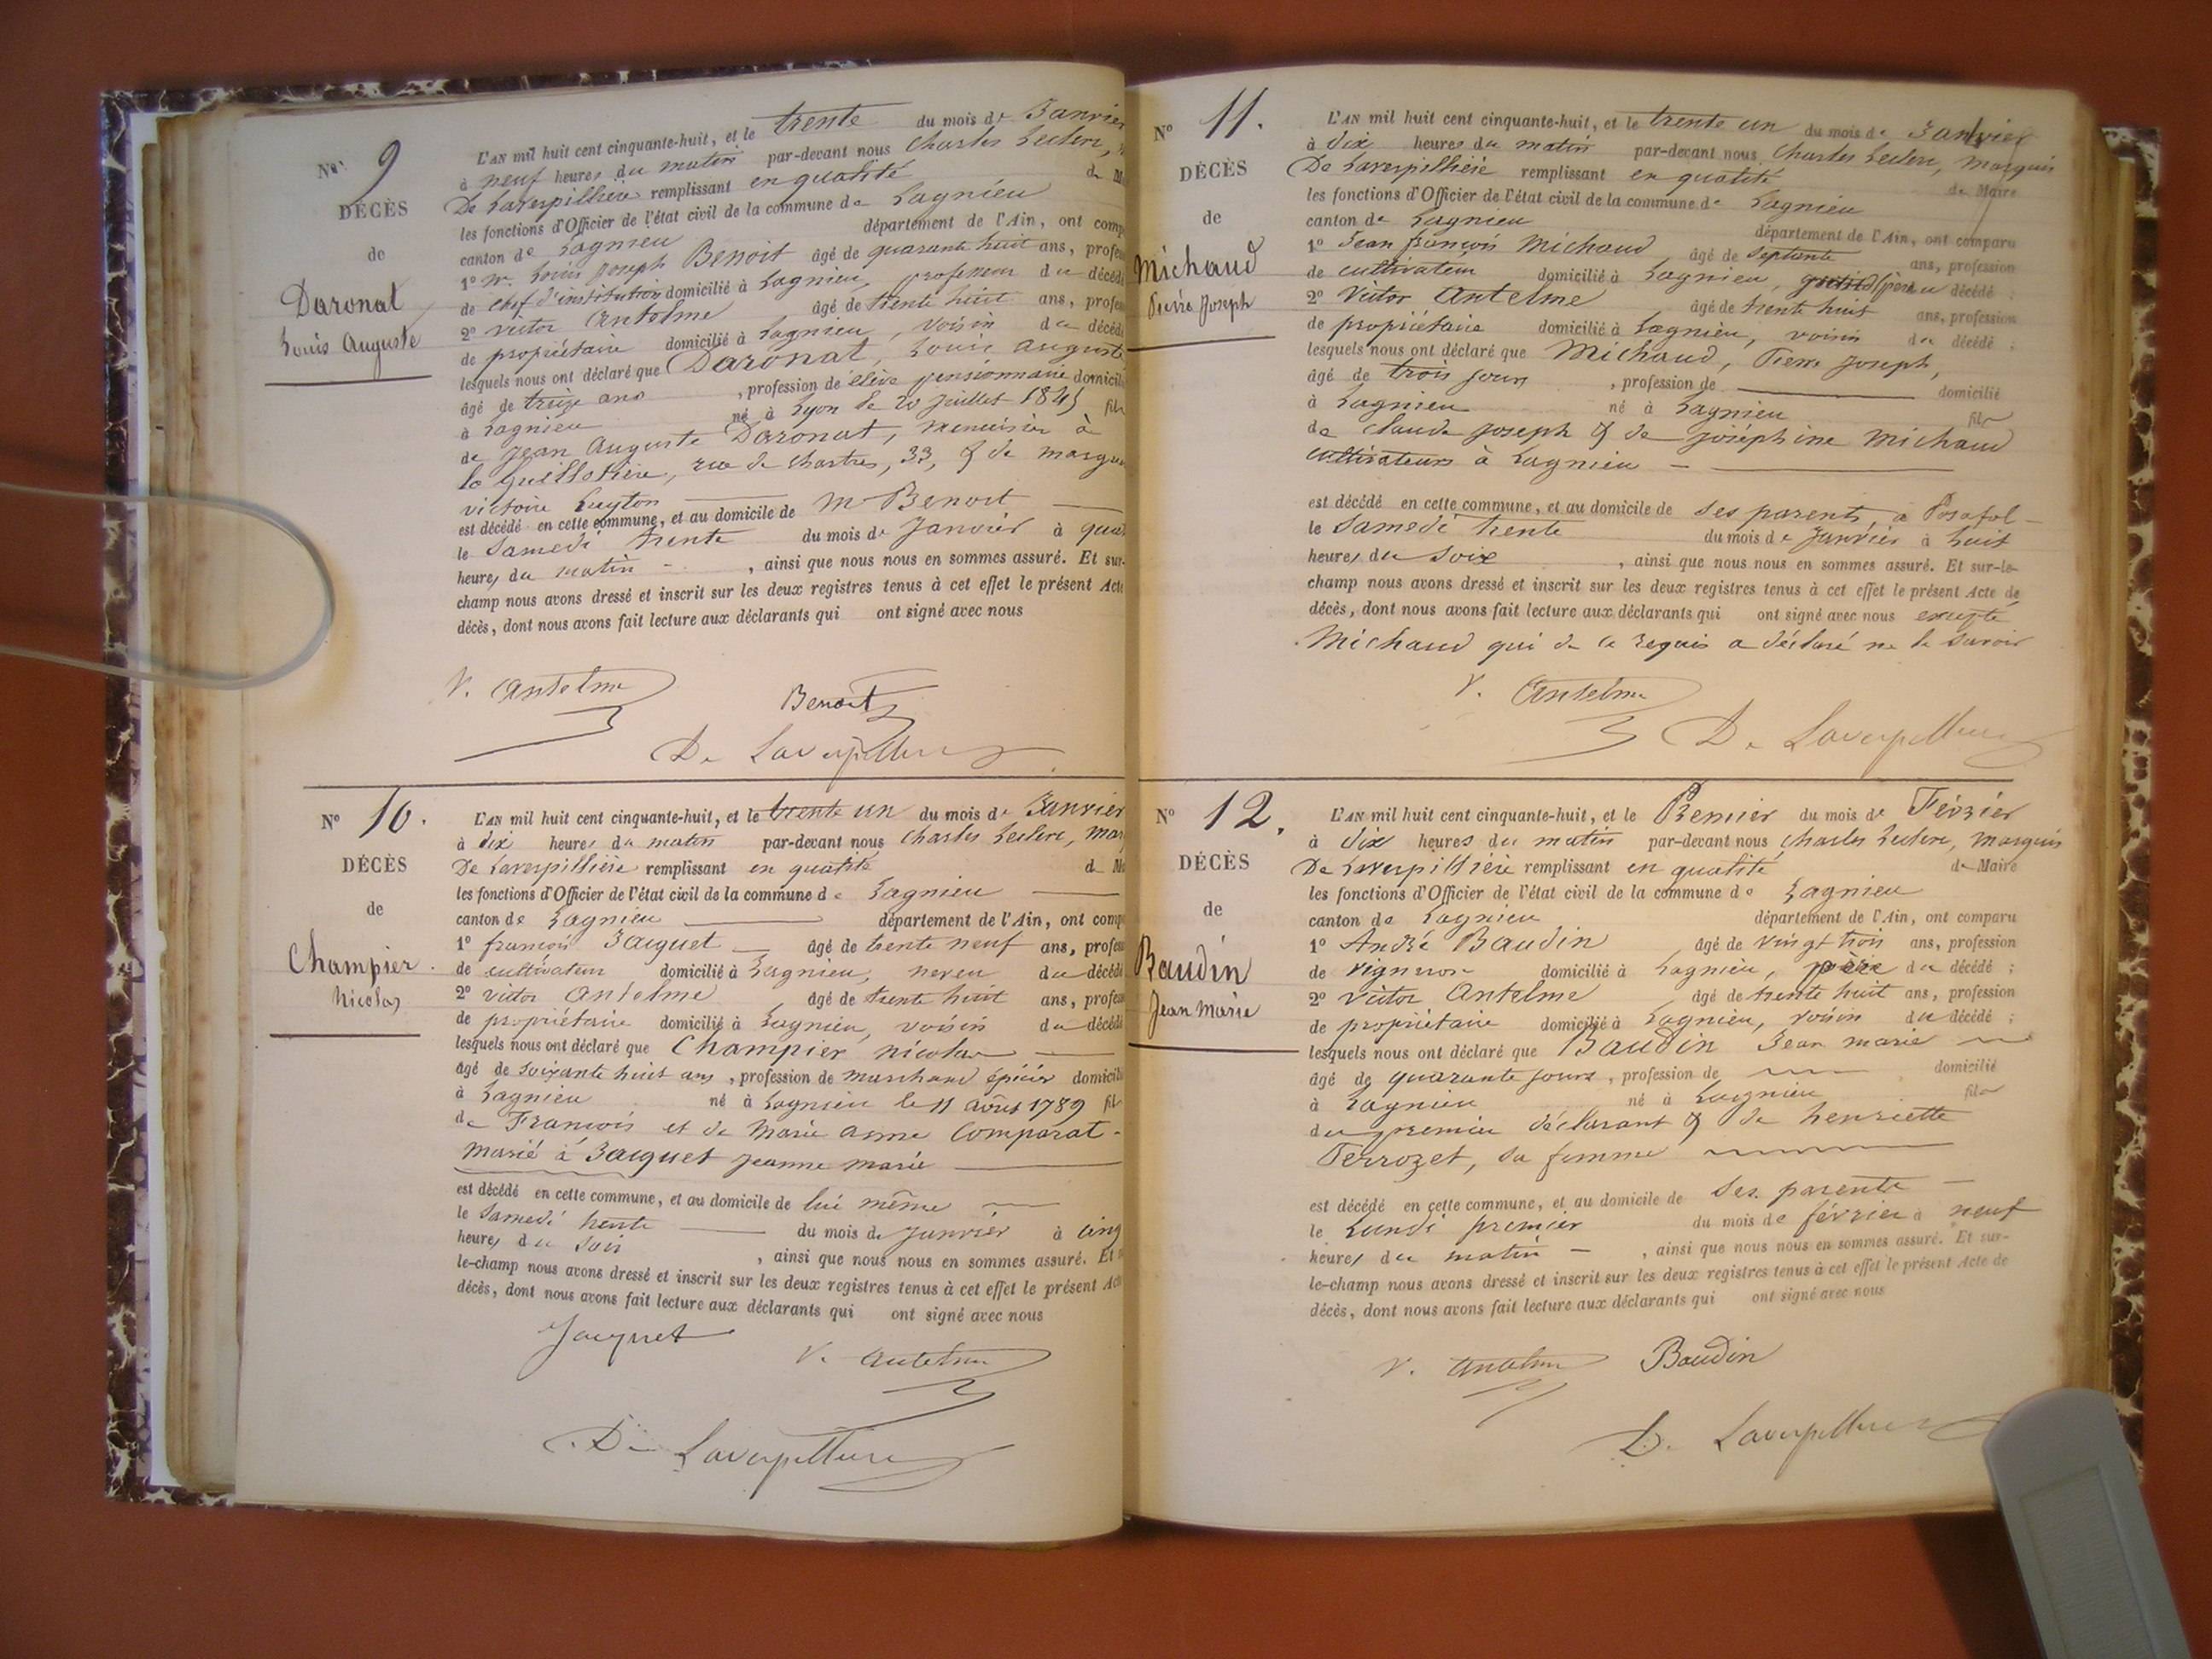 N° 9
DÉCÈS
de
Daronat
Louis Auguste
L'AN mil huit cent cinquante-huit, et le trente du mois de Janvier
à neuf heures du matin par-devant nous Charles Leclerc,
De Laverpillière remplissant en qualité de
les fonctions d'Officier de l'état civil de la commune de Lagnieu
canton de Lagnieu département de l'Ain, ont comp
1° Mr. Louis Joseph Benoit âgé de quarante huit ans, profes
de chef d'institution domicilié à Lagnieu, professeur du décédé
2° Victor Antelme âgé de trente huit ans, profes
de propriétaire domicilié à Lagnieu, voisin du décédé
lesquels nous ont déclaré que Daronat, Louis Auguste
âgé de treize ans, profession de élève pensionnaire domicilié
à Lagnieu né à Lyon le juillet 1845 fils
de Jean Auguste Daronat, menuisier à
la Guillotière, rue de Chartres, 33, & de
victoire
est décédé en cette commune, et au domicile de Mr Benoit
le Samedi trente du mois de Janvier à
heures du matin, ainsi que nous nous en sommes assuré. Et sur-
champ nous avons dressé et inscrit sur les deux registres tenus à cet effet le présent Acte
décès, dont nous avons fait lecture aux déclarants qui ont signé avec nous
V. Antelme Benoit
De Laverpillière
N° 10.
DÉCÈS
de
Champier
Nicolas
L'AN mil huit cent cinquante-huit, et le trente un du mois de Janvier
à dix heures du matin par-devant nous Charles Leclerc, Mar
De Laverpillière remplissant en qualité de
les fonctions d'Officier de l'état civil de la commune de Lagnieu
canton de Lagnieu département de l'Ain, ont comp
1° françois Jacquet âgé de trente neuf ans, profes
de cultivateur domicilié à Lagnieu, neveu du décédé
2° Victor Antelme âgé de trente huit ans, profes
de propriétaire domicilié à Lagnieu, voisin du décédé
lesquels nous ont déclaré que Champier nicolas
âgé de soixante huit ans, profession de marchand épicier domicilié
à Lagnieu né à Lagnieu le 11 août 1789 fils
de François et de Marie anne Comparat
marié à Jacquet jeanne marie
est décédé en cette commune, et au domicile de lui même
le Samedi trente du mois de Janvier à cinq
heures du soir, ainsi que nous nous en sommes assuré. Et
le-champ nous avons dressé et inscrit sur les deux registres tenus à cet effet le présent Acte
décès, dont nous avons fait lecture aux déclarants qui ont signé avec nous
Jacquet V. Antelme
De Laverpillière
N° 11.
DÉCÈS
de
Michaud
Pierre Joseph
L'AN mil huit cent cinquante-huit, et le trente un du mois de Janvier
à dix heures du matin par-devant nous Charles Leclerc, marquis
De Laverpillière remplissant en qualité de Maire
les fonctions d'Officier de l'état civil de la commune de Lagnieu
canton de Lagnieu département de l'Ain, ont comparu
1° Jean françois Michaud âgé de septante ans, profession
de cultivateur domicilié à Lagnieu, du décédé ;
2° Victor Antelme âgé de trente huit ans, profession
de propriétaire domicilié à Lagnieu, voisin du décédé ;
lesquels nous ont déclaré que Michaud, Pierre Joseph,
âgé de trois jours, profession de domicilié
à Lagnieu né à Lagnieu fils
de Claude Joseph & de Joséphine Michaud
cultivateurs à Lagnieu
est décédé en cette commune, et au domicile de ses parents, à
le Samedi trente du mois de Janvier à huit
heures du soir, ainsi que nous nous en sommes assuré. Et sur-le-
champ nous avons dressé et inscrit sur les deux registres tenus à cet effet le présent Acte de
décès, dont nous avons fait lecture aux déclarants qui ont signé avec nous excepté
Michaud qui de ce requis a déclaré ne le savoir
V. Antelme
De Laverpillière
N° 12.
DÉCÈS
de
Baudin
Jean Marie
L'AN mil huit cent cinquante-huit, et le Premier du mois de Février
à dix heures du matin par-devant nous Charles Leclerc, Marquis
De Laverpillière remplissant en qualité de Maire
les fonctions d'Officier de l'état civil de la commune de Lagnieu
canton de Lagnieu département de l'Ain, ont comparu
1° André Baudin âgé de vingt trois ans, profession
de vigneron domicilié à Lagnieu, père du décédé ;
2° Victor Antelme âgé de trente huit ans, profession
de propriétaire domicilié à Lagnieu, voisin du décédé ;
lesquels nous ont déclaré que Baudin Jean marie
âgé de quarante jours, profession de domicilié
à Lagnieu né à Lagnieu fils
du premier déclarant & de henriette
Perrozet, sa femme
est décédé en cette commune, et au domicile de ses parents
le Lundi premier du mois de février à neuf
heures du matin, ainsi que nous nous en sommes assuré. Et sur-
le-champ nous avons dressé et inscrit sur les deux registres tenus à cet effet le présent Acte de
décès, dont nous avons fait lecture aux déclarants qui ont signé avec nous
V. Antelme Baudin
De Laverpillière